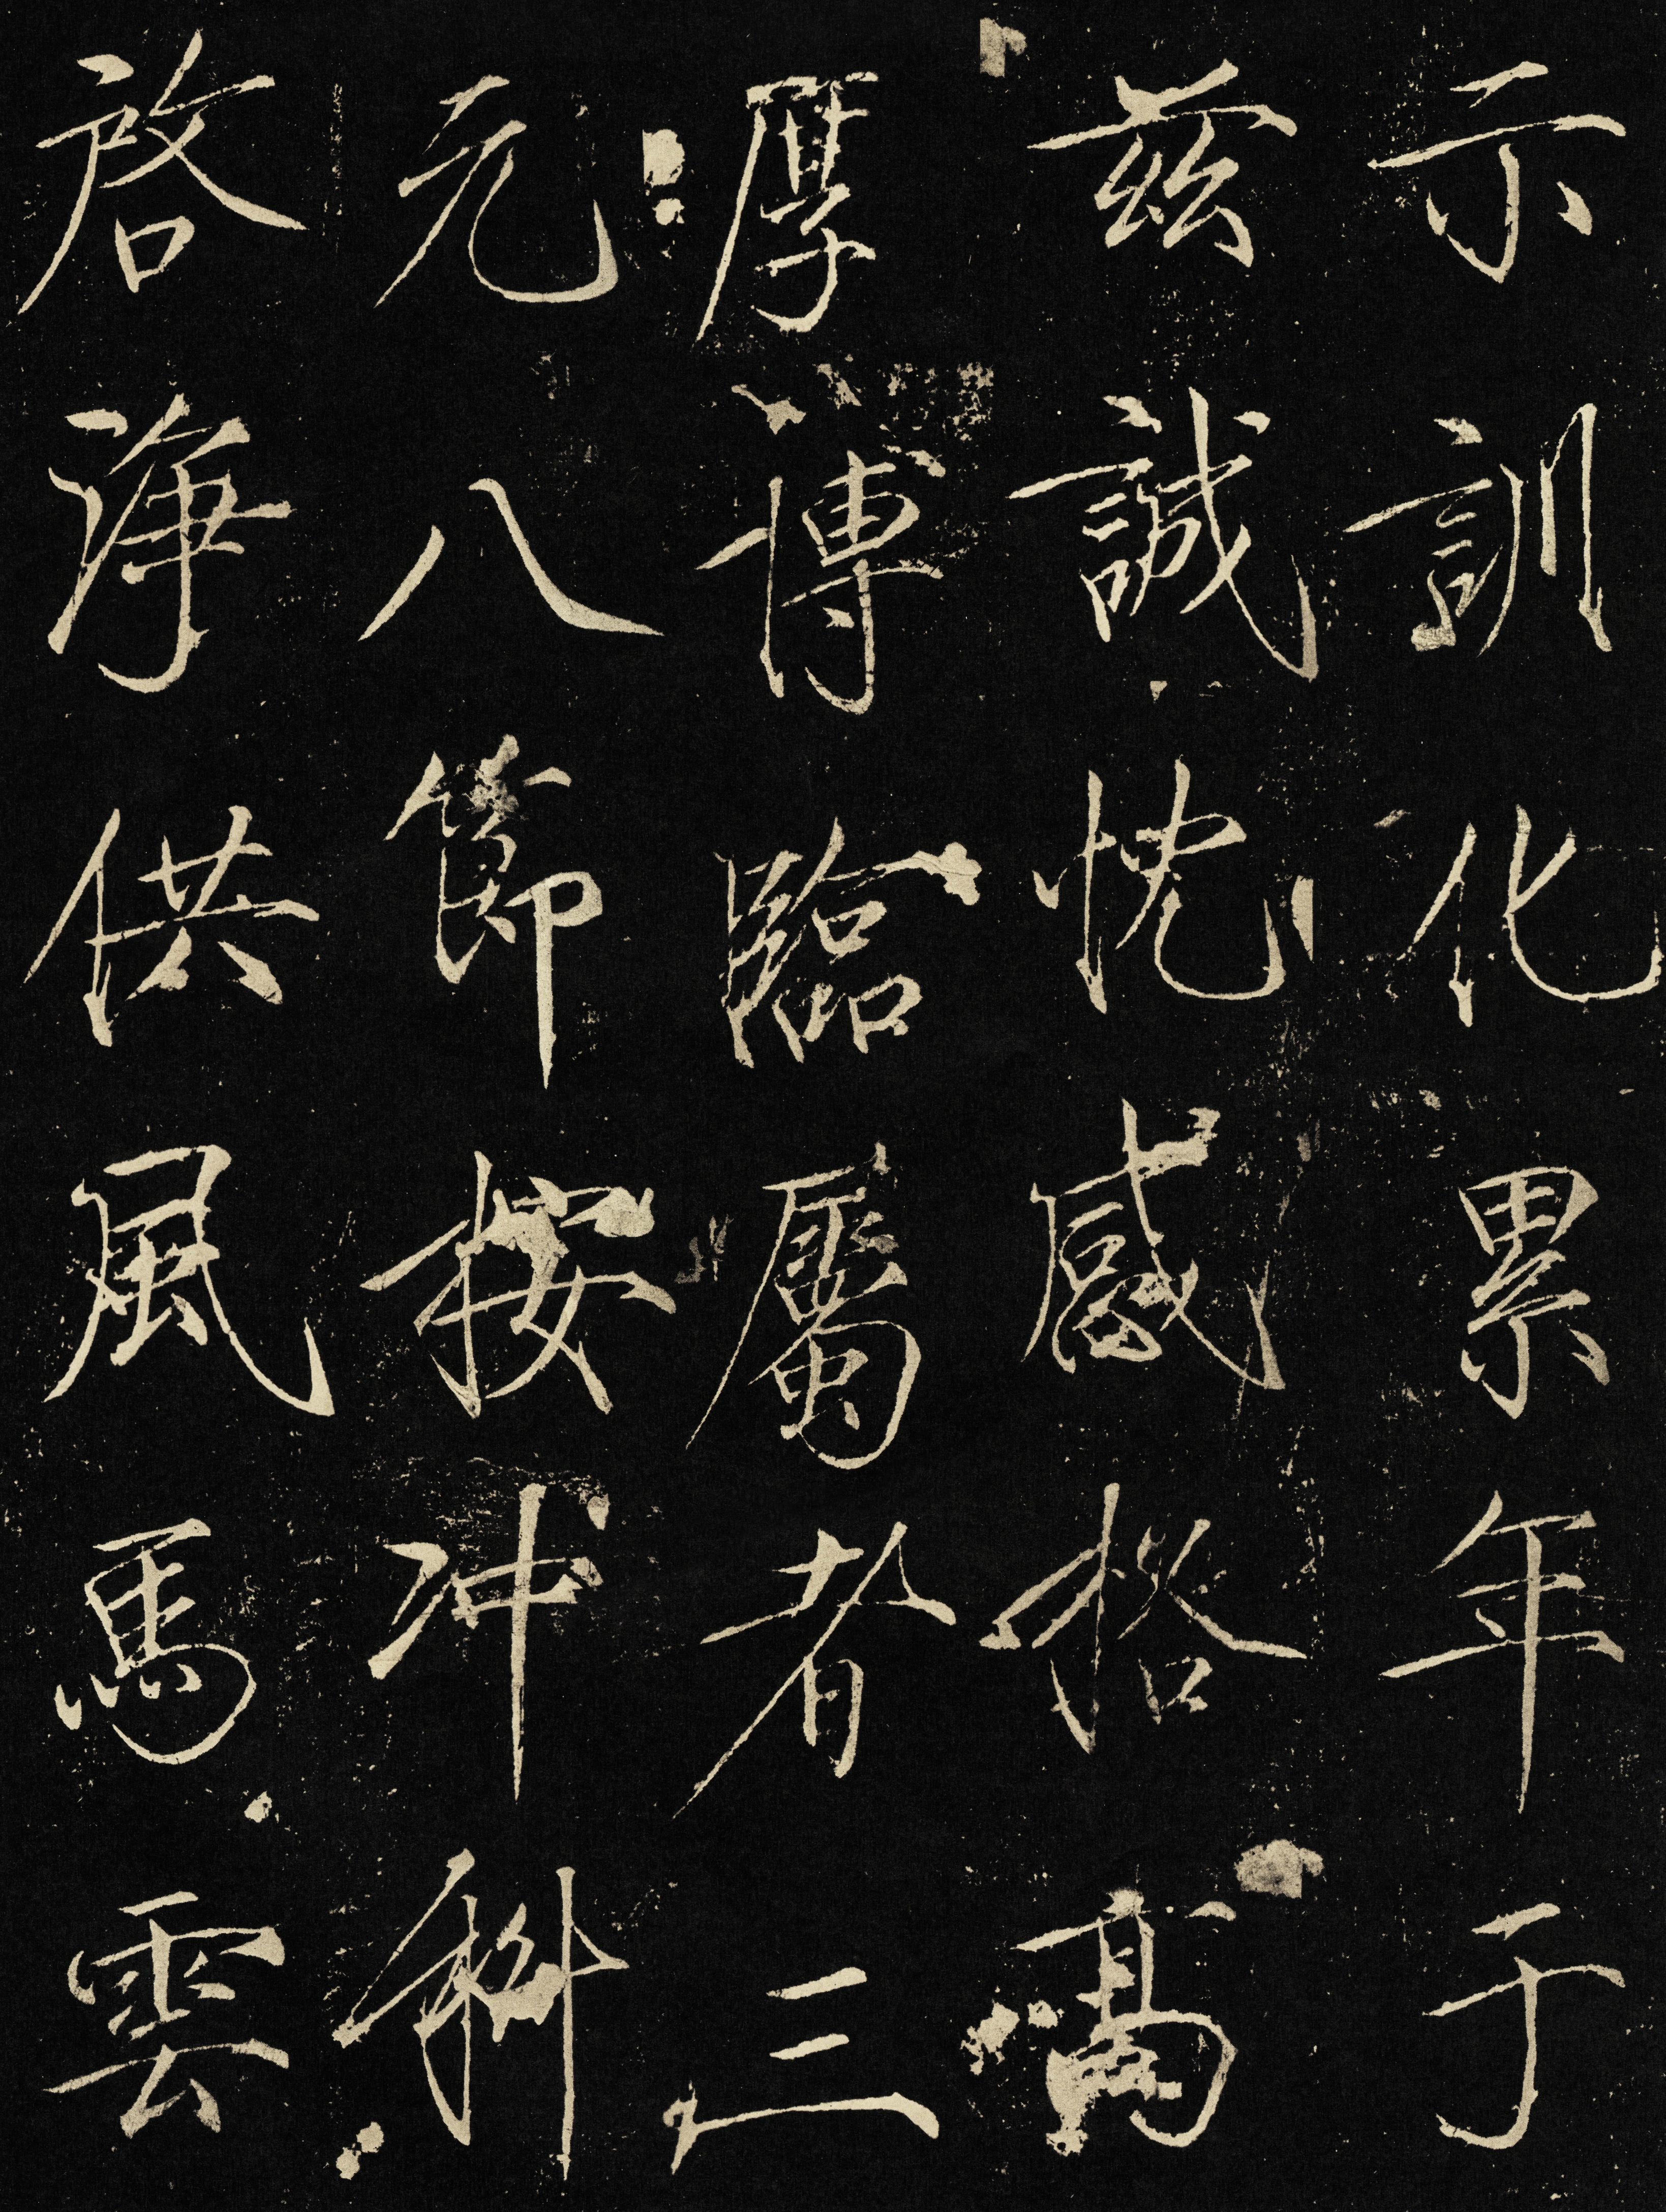 示訓化累年于
茲誠忱感格高
厚博臨屬者三
元八節按沖科
啓淨供風馬雲